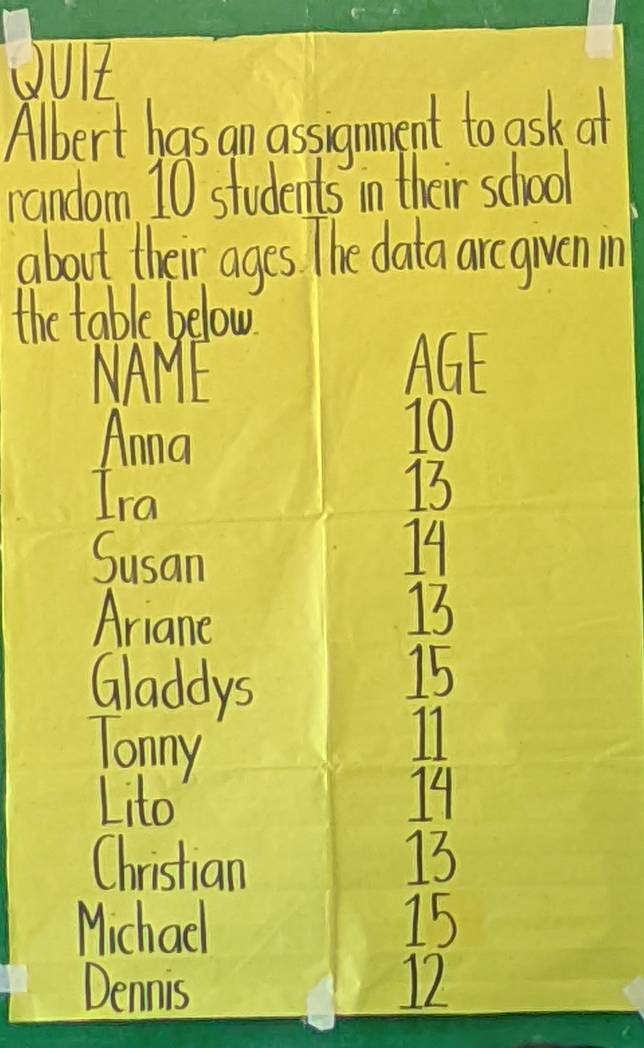 QUIZ
Albert has an assignment to ask at
random 10 students in their school
about their ages. The data are given in
the table below.
NAME AGE
Anna 10
Ira 13
Susan 14
Ariane 13
Gladdys 15
Tonny 11
Lito 14
Christian 13
Michael 15
Dennis 12